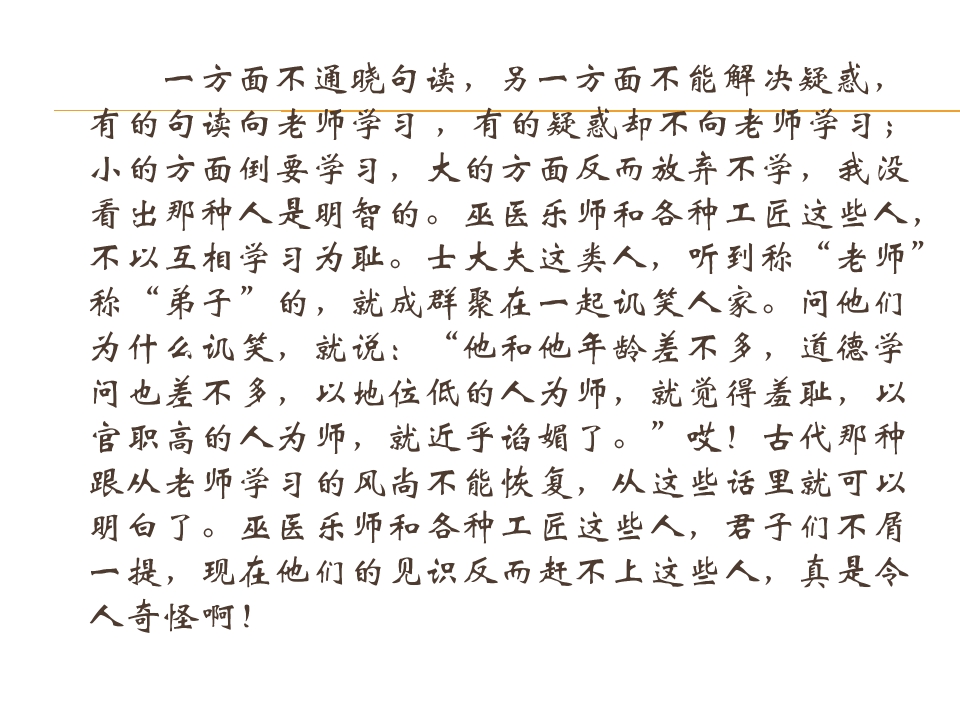 一方面不通晓句读，另一方面不能解决疑惑，
有的句读向老师学习 ，有的疑惑却不向老师学习；
小的方面倒要学习，大的方面反而放弃不学，我没
看出那种人是明智的。巫医乐师和各种工匠这些人，
不以互相学习为耻。士大夫这类人，听到称“老师”
称“弟子”的，就成群聚在一起讥笑人家。问他们
为什么讥笑，就说：“他和他年龄差不多，道德学
问也差不多，以地位低的人为师，就觉得羞耻，以
官职高的人为师，就近乎谄媚了。”哎！古代那种
跟从老师学习的风尚不能恢复，从这些话里就可以
明白了。巫医乐师和各种工匠这些人，君子们不屑
一提，现在他们的见识反而赶不上这些人，真是令
人奇怪啊！